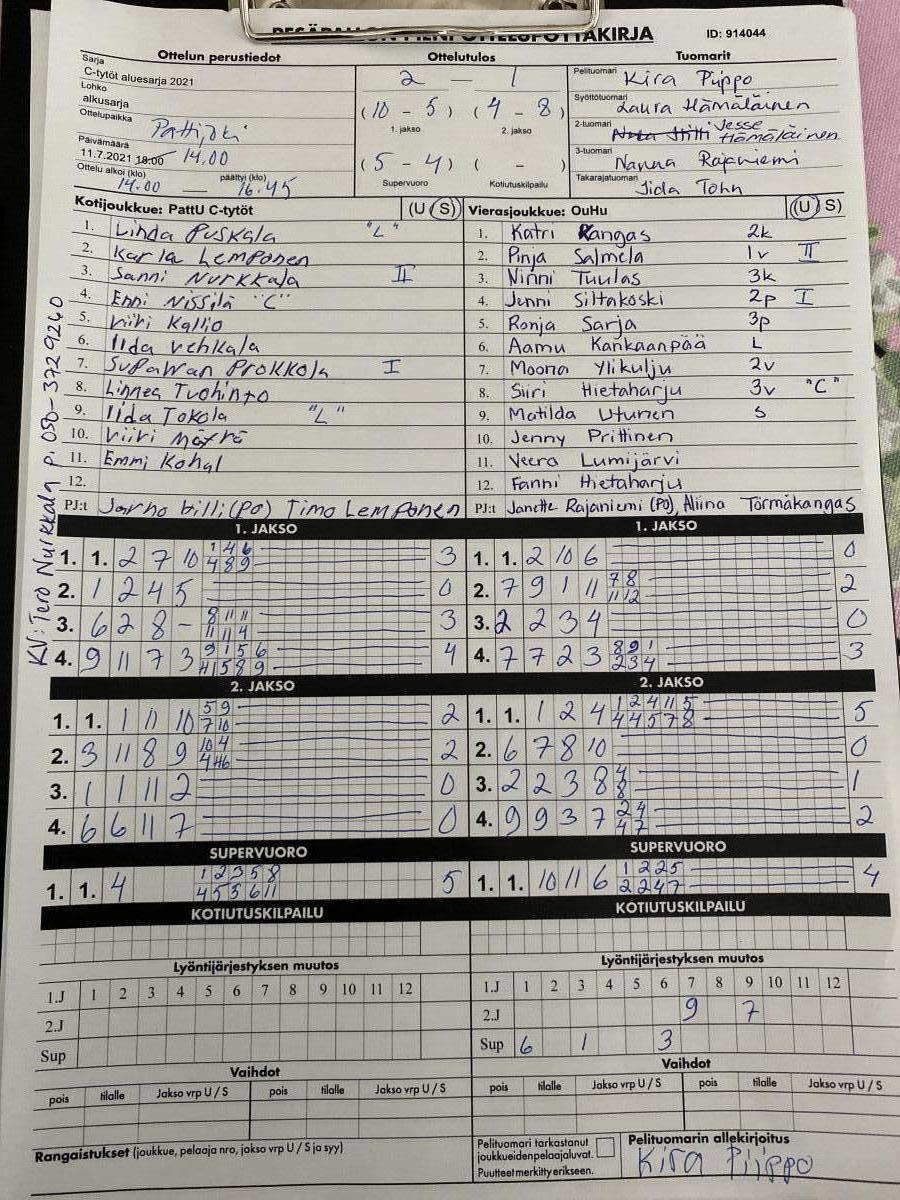 PESÄPALLON PIENI OTTELUPÖYTÄKIRJA ID: 914044
Ottelun perustiedot Ottelutulos Tuomarit
Sarja
C-tytöt aluesarja 2021
Lohko
alkusarja
Ottelupaikka
Pattijoki
Päivämäärä
11.7.2021 18:00 14.00
Ottelu alkoi (klo) päättyi (klo)
14.00 — 16.45
2 — 1
(10 - 5) (4 - 8)
1. jakso 2. jakso
(5 - 4) ( - )
Supervuoro Kotiutuskilpailu
Pelituomari Kira Piippo
Syöttötuomari Laura Hämäläinen
2-tuomari Jesse Hämäläinen
3-tuomari Nanna Rajaniemi
Takarajatuomari Iida Tohn
Kotijoukkue: PattU C-tytöt (U S)
1. Linda Puskala "L"
2. Karla Lemponen
3. Sanni Nurkkala II
4. Enni Nissilä "C"
5. Viivi Kallio
6. Iida Vehkala
7. Supawan Prokkola I
8. Linnea Tuohinto
9. Iida Tokola "L"
10. Viivi Mäyrä
11. Emmi Kohal
12.
PJ:t Jarho Lilli (PO) Timo Lemponen
KV: Tero Nurkkala p. 050-372 9260
Vierasjoukkue: OuHu (U S)
1. Katri Kangas 2k
2. Pinja Salmela 1v II
3. Ninni Tuulas 3k
4. Jenni Siltakoski 2p I
5. Ronja Sarja 3p
6. Aamu Kankaanpää L
7. Moona Ylikulju 2v
8. Siiri Hietaharju 3v "C"
9. Matilda Utunen S
10. Jenny Prittinen
11. Veera Lumijärvi
12. Fanni Hietaharju
PJ:t Janette Rajaniemi (PO), Aliina Törmäkangas
1. JAKSO
1. 1. 2 7 10 1 4 6 4 8 9 3
2. 1 2 4 5 0
3. 6 2 8 - 8 11 11 11 11 4 3
4. 9 11 7 3 9 1 5 6 11 5 8 9 4
2. JAKSO
1. 1. 1 11 10 5 9 7 10 2
2. 3 11 8 9 10 4 2
3. 1 1 11 2 0
4. 6 6 11 7 0
SUPERVUORO
1. 1. 4 1 2 3 5 8 4 5 5 6 11 5
KOTIUTUSKILPAILU
Lyöntijärjestyksen muutos
1.J 1 2 3 4 5 6 7 8 9 10 11 12
2.J
Sup
Vaihdot
pois tilalle Jakso vrp U / S pois tilalle Jakso vrp U / S
Rangaistukset (joukkue, pelaaja nro, jakso vrp U / S ja syy)
1. JAKSO
1. 1. 2 10 6 0
2. 7 9 1 11 7 8 11 12 2
3. 2 2 3 4 0
4. 7 7 2 3 8 9 1 2 3 4 3
2. JAKSO
1. 1. 1 2 4 1 2 4 11 5 4 4 5 7 8 5
2. 6 7 8 10 0
3. 2 2 3 8 4 8 1
4. 9 9 3 7 2 4 4 7 2
SUPERVUORO
1. 1. 10 11 6 1 2 2 5 2 2 4 7 4
KOTIUTUSKILPAILU
Lyöntijärjestyksen muutos
1.J 1 2 3 4 5 6 7 8 9 10 11 12
2.J 9 7
Sup 6 1 3
Vaihdot
pois tilalle Jakso vrp U / S pois tilalle Jakso vrp U / S
Pelituomari tarkastanut
joukkueiden pelaajaluvat.
Puutteet merkitty erikseen.
Pelituomarin allekirjoitus
Kira Piippo